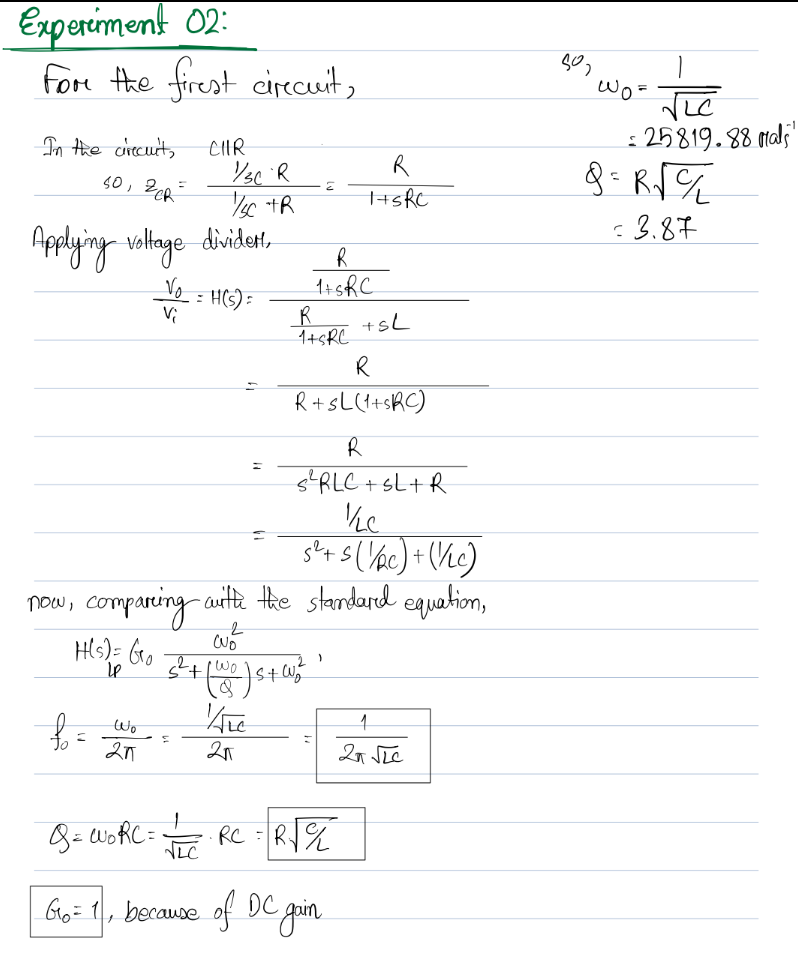 Experiment 02:
For the first circuit,
In the circuit, C||R
so, Z_CR = (1/sC · R)/(1/sC + R) = R/(1+sRC)
Applying voltage divider,
Vo/Vi = H(s) = (R/(1+sRC))/(R/(1+sRC) + sL)
= R/(R + sL(1+sRC))
= R/(s²RLC + sL + R)
= (1/LC)/(s² + s(1/RC) + (1/LC))
now, comparing with the standard equation,
H(s)_LP = G₀ ω₀²/(s² + (ω₀/Q)s + ω₀²),
f₀ = ω₀/2π = (1/√LC)/2π = 1/(2π√LC)
Q = ω₀RC = 1/√LC · RC = R√(C/L)
G₀ = 1, because of DC gain
so, ω₀ = 1/√LC
= 25819.88 rads⁻¹
Q = R√(C/L)
= 3.87